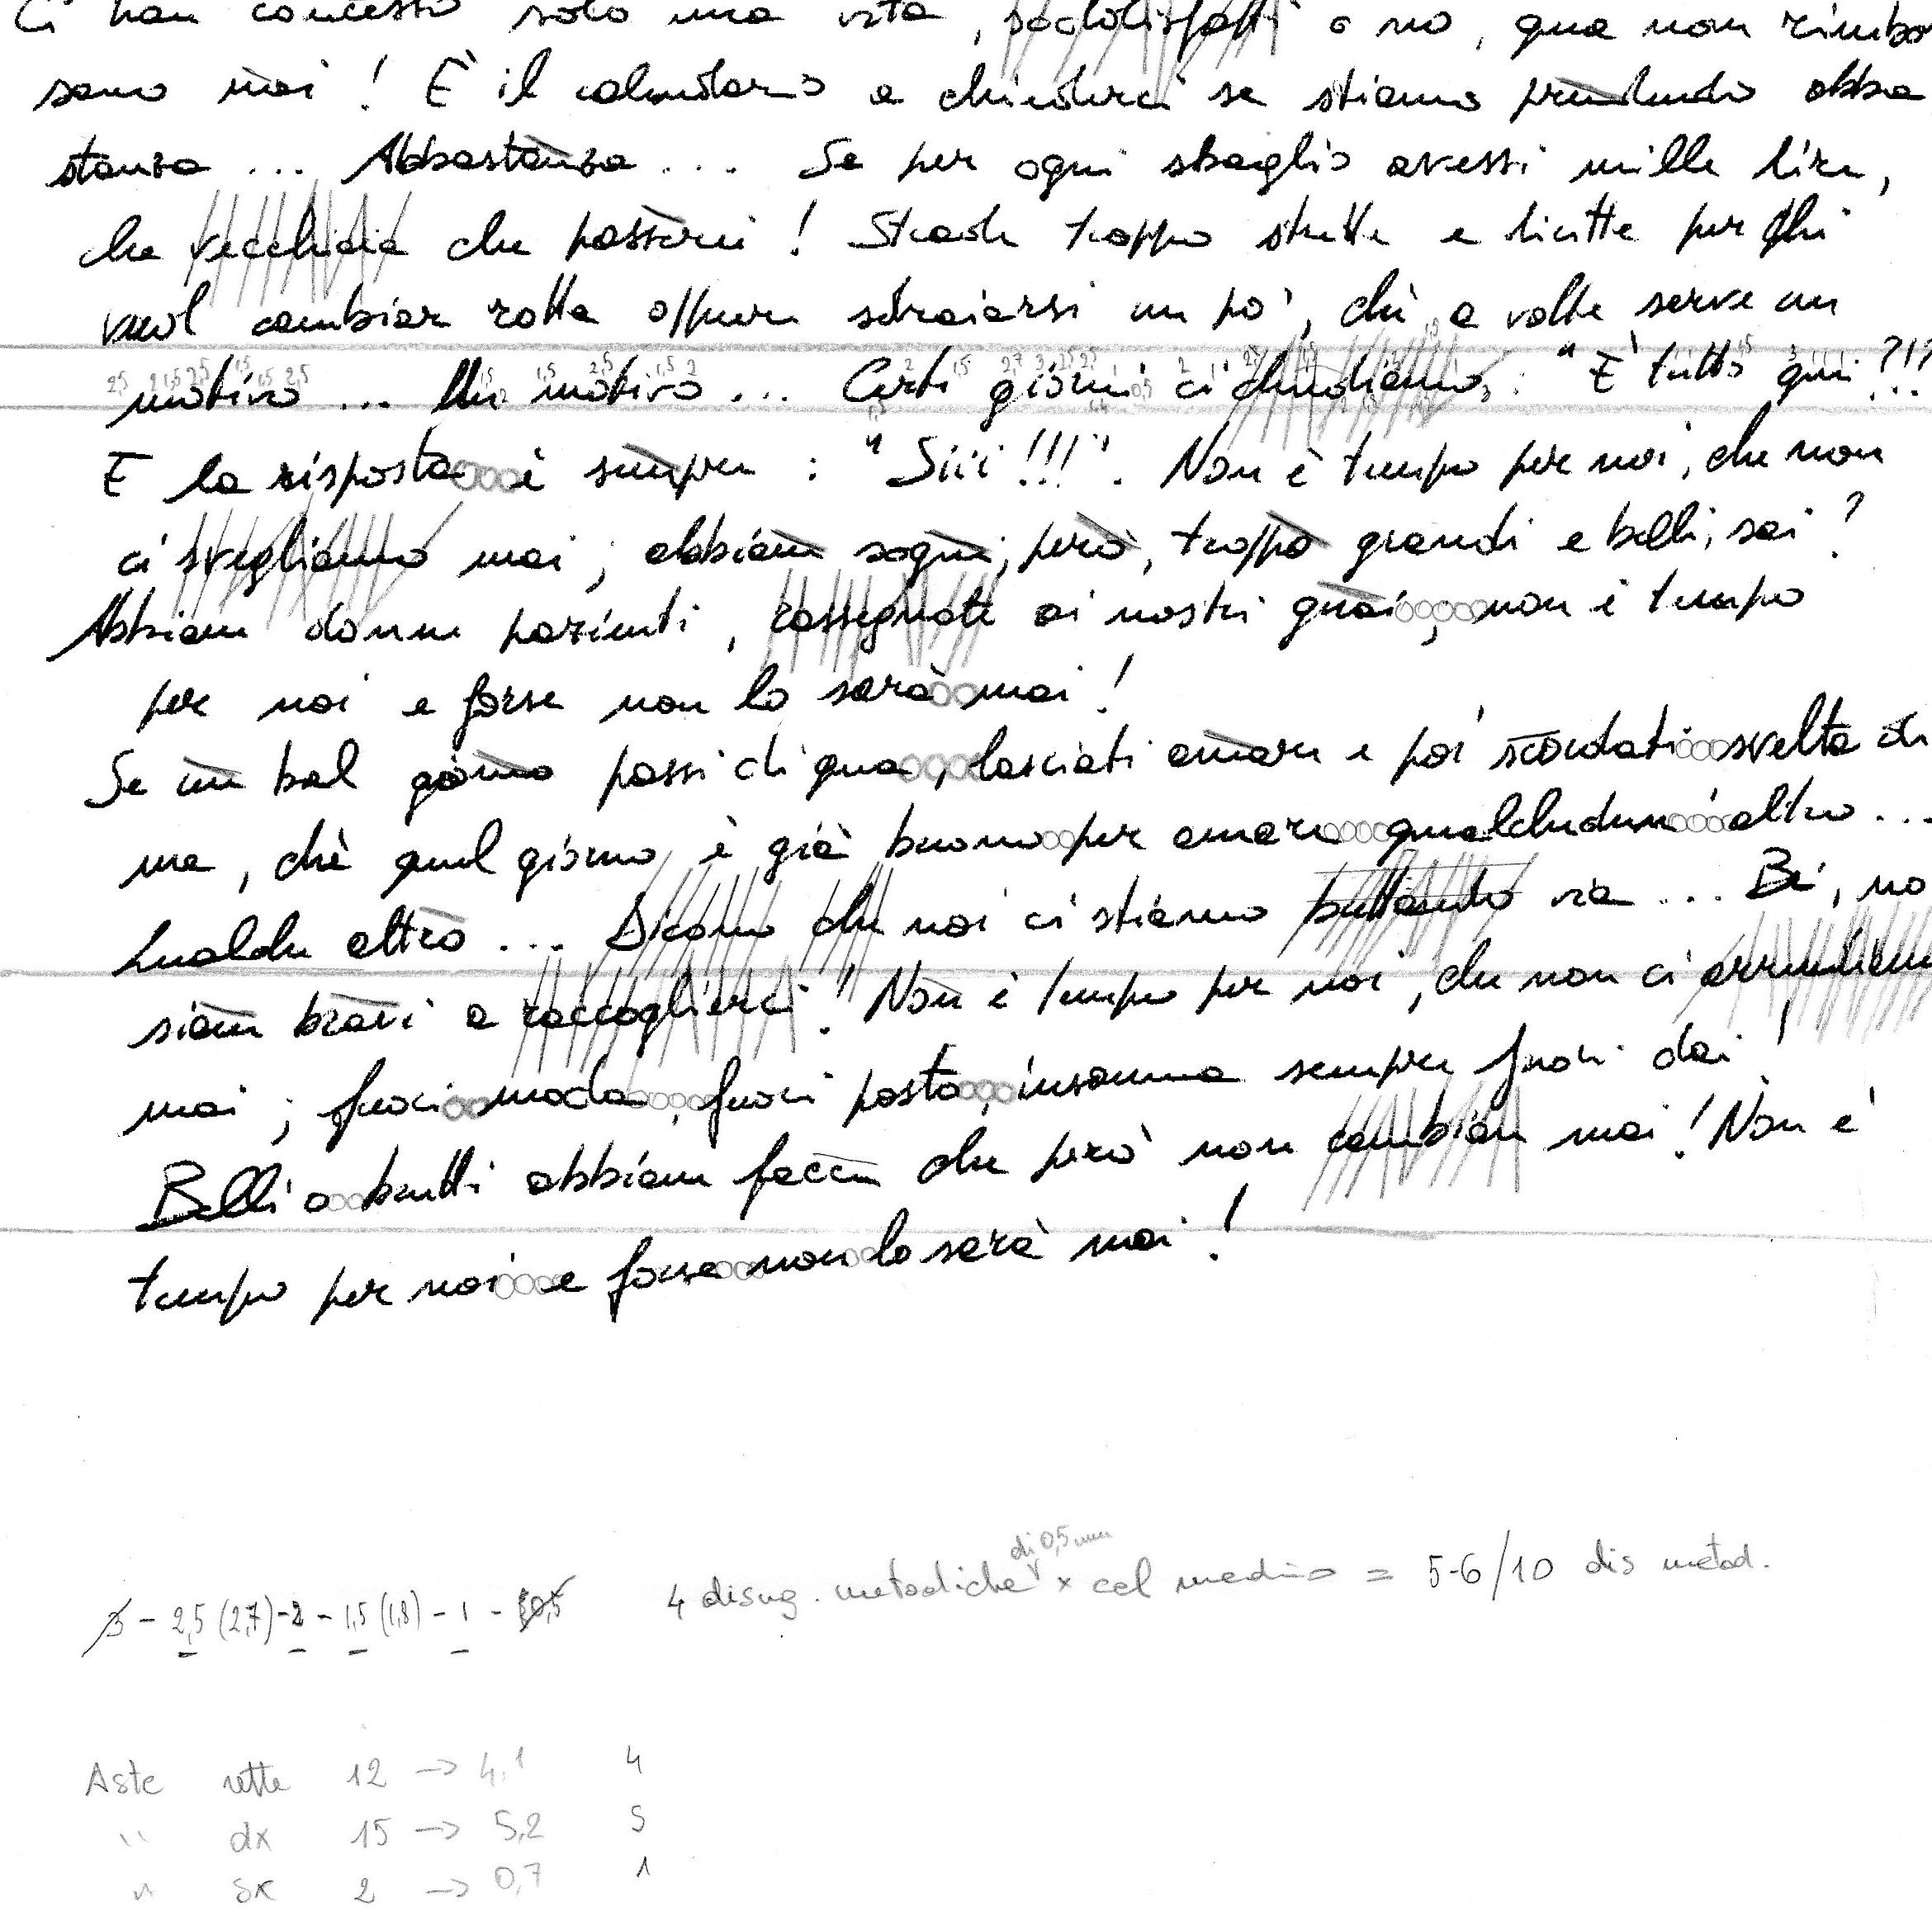 Ci han concesso solo una vita, soddisfatti o no, qua non rimbor
sano mai! È il calendario a chiederci se stiamo prendendo abba
stanza ... Abbastanza ... Se per ogni sbaglio avessi mille lire,
che vecchiaia che passerei! Strade troppo strette e diritte per chi
vuol cambiar rotta oppure sdraiarsi un po', chè a volte serve un
motivo ... Un motivo ... Certi giorni ci chiediamo: "È tutto qui?!?
E la risposta è sempre: "Siii!!!". Non è tempo per noi, che non
ci svegliamo mai; abbiam sogni, però, troppo grandi e belli, sai?
Abbiam donne pazienti, rassegnate ai nostri guai, non è tempo
per noi e forse non lo sarà mai!
Se un bel giorno passi di qua, lasciati amare e poi scordati svelta di
me, chè quel giorno è già buono per amare qualchedun altro ...
altro ... Dicono che noi ci stiamo buttando via ... Be', no
siam bravi a raccoglierci! Non è tempo per noi, che non ci arrendiam
mai; fuori moda, fuori posto, insomma sempre fuori dai!
Belli o brutti abbiam facce che però non cambian mai! Non è
tempo per noi e forse non lo sarà mai!
di 0,5 mm
4 disug. metodiche x cal medio = 5-6/10 dis metod.
3 - 2,5 (2,7) - 2 - 1,5 (1,8) - 1 - 0,5
Aste rette 12 → 4,1 4
" dx 15 → 5,2 5
" sx 2 → 0,7 1